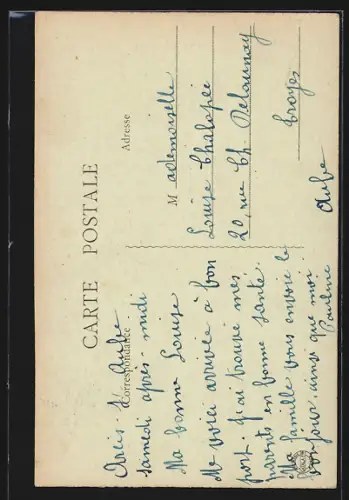 CARTE POSTALE
Correspondance
Adresse
Arcis s/ Aube
samedi après-midi
Ma bonne Louise
Me voici arrivée à bon
port. J'ai trouvé mes
parents en bonne santé.
Ma famille vous envoie le
bonjour, ainsi que moi.
Pauline
Mademoiselle
Louise Chalopée
20, rue Ch. Delaunay
Troyes
Aube